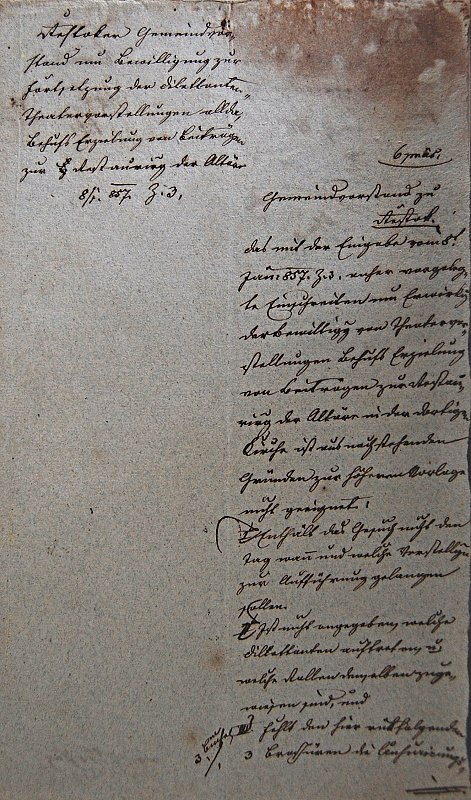 Rostoker Gemeindvor-
stand um Bewilligung zur
Fortsetzung der Dilettanten-
Theatervorstellungen allda,
Behufs Erzielung von Beiträgen
zur Restaurirg der Altäre
8/1. 857. Z. 3,
Gemeindvorstand zu
Rostok.
Das mit der Eingabe vom 8t.
Jän: 857. Z. 3, anher vorgeleg-
te Einschreiten um Erwirkg
der Bewilligg von Theatervor-
stellungen Behufs Erzielung
von Beiträgen zur Restau-
rirg der Altäre in der dortigen
Kirche ist aus nachstehenden
Gründen zur höheren Vorlage
nicht geeignet:
I Enthält das Gesuch nicht den
Tag wann und welche Vorstellgn
zur Aufführung gelangen
sollen.
II Ist nicht angegeben, welche
Dilettanten auftreten, u.
welche Rollen denselben zuge-
wiesen sind, und
III fehlt den hier rückfolgenden
3 Brochüren die Censurirung